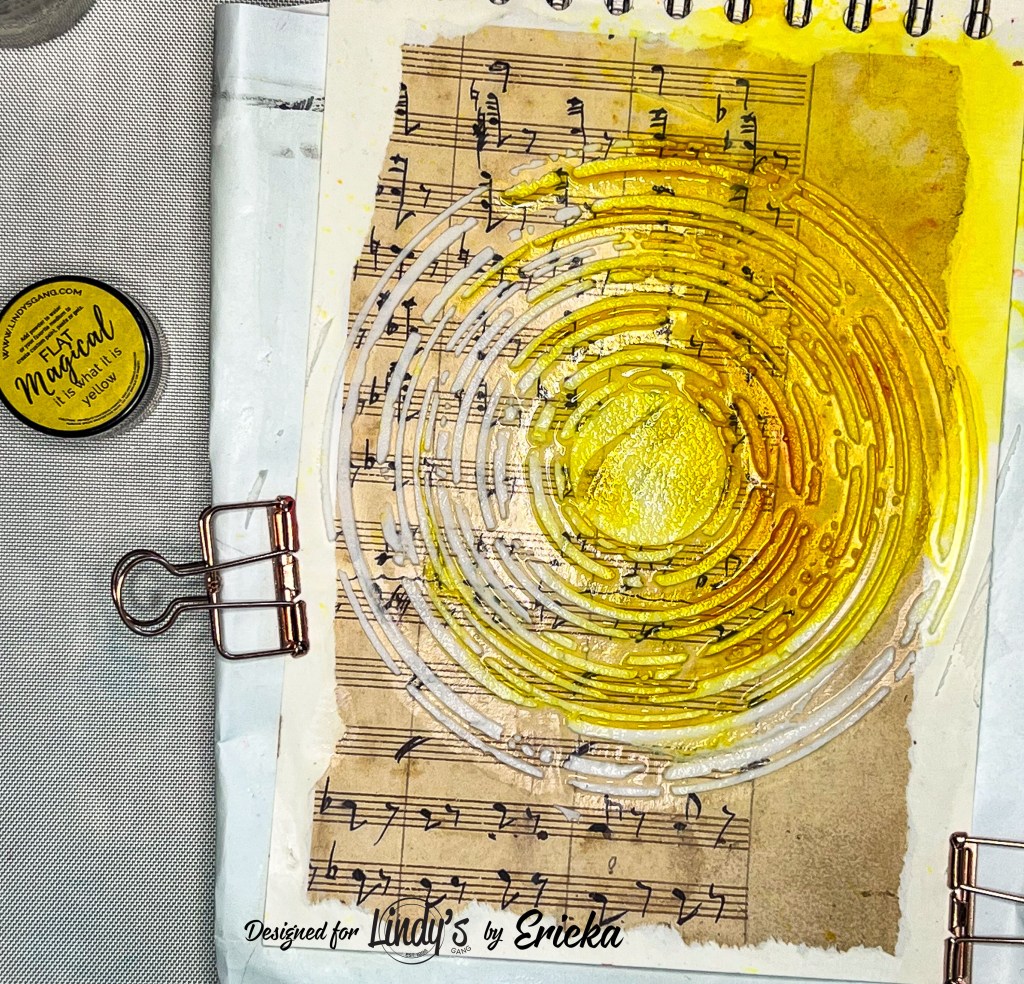 WWW.LINDYSGANG.COM
FLAT
Magical
it is what it is
yellow
Designed for Lindy's GANG by Ericka